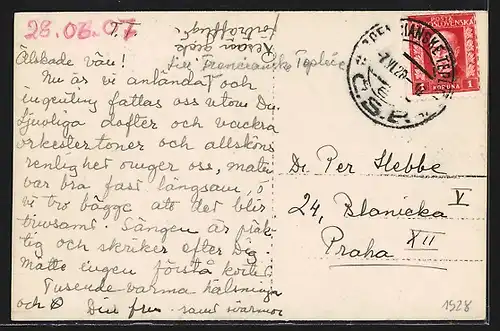 28.06.07
T.T.
Resan gick
förträffligt.
Älskade vän!
till Trencianske Teplice
Nu är vi anländat och
ingenting fattas oss utom Du.
Ljuvliga dofter och vackra
orkestertoner och allsköns
renlighet omger oss, maten
var bra fast långsam, o
vi tro bägge att det blir
trivsamt. Sängen är präk-
tig och skriker efter Dig.
Måtte ingen förstå kortet
Tusende varma hälsningar
och Din fru samt svärmor
TRENČIANSKE TEPLICE
7.VI.28
Č.S.P.
POŠTA
ČESKOSLOVENSKÁ
1 KORUNA 1
Dr. Per Hebbe
V
24, Blanicka
XII
Praha
1928